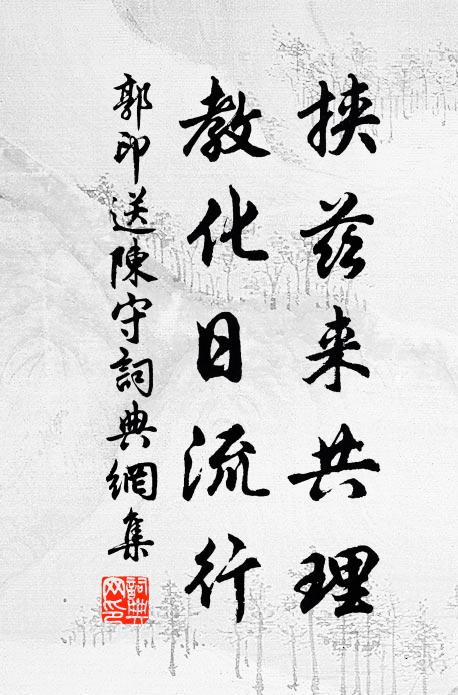 挾茲来共理
教化日流行
郭印送陳守詞典網集
詞典
网印